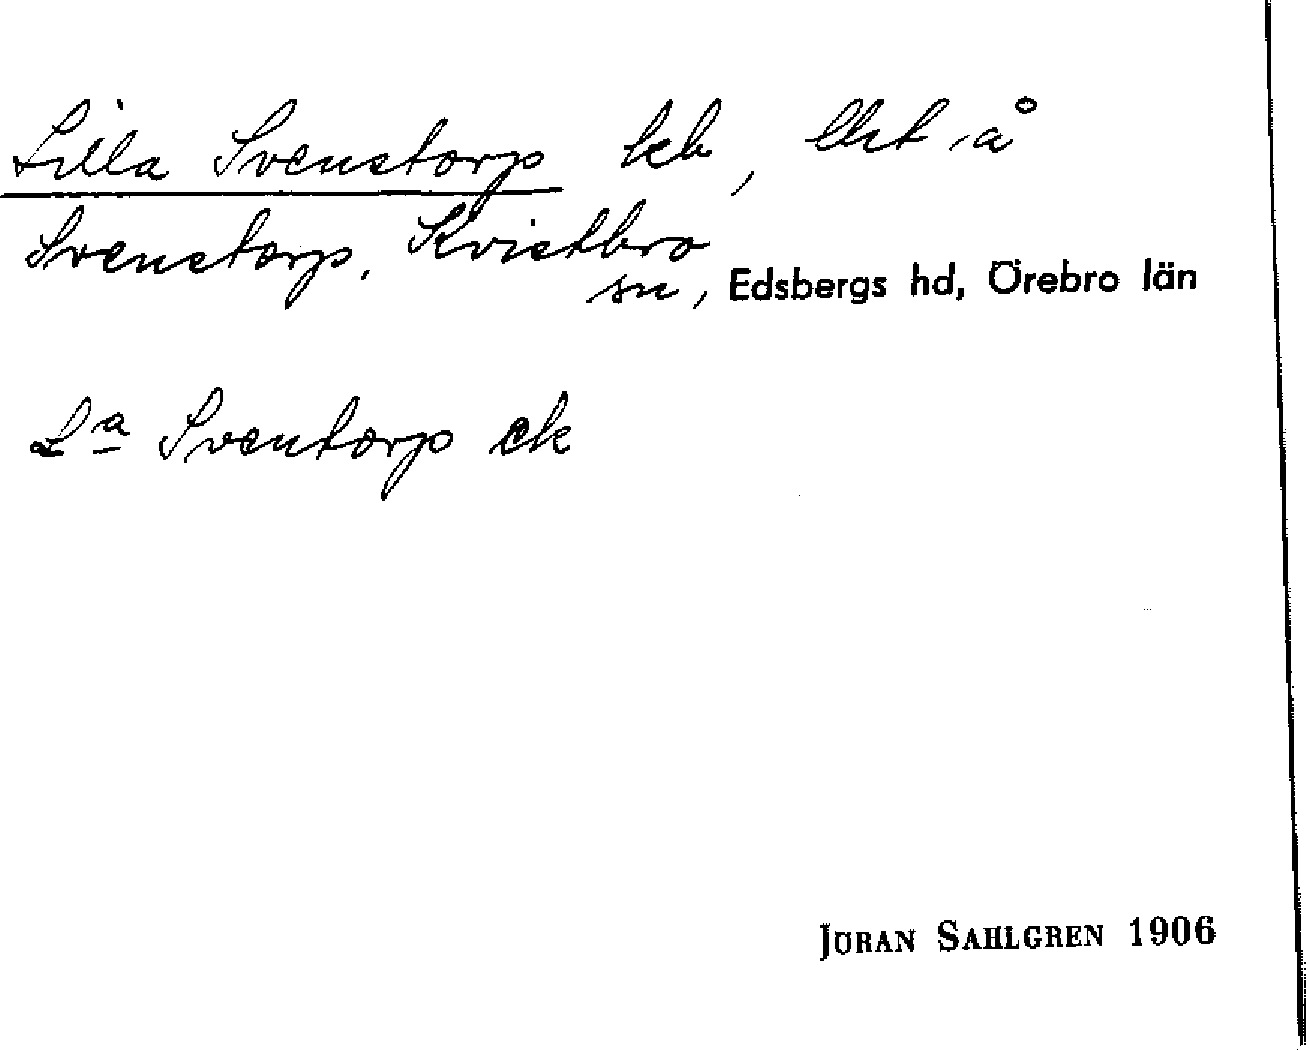 Lilla Svenstorp lch, lht å
Svenstorp, Kvistbro
sn, Edsbergs hd, Örebro län
Lª Sventorp ek
JÖRAN SAHLGREN 1906